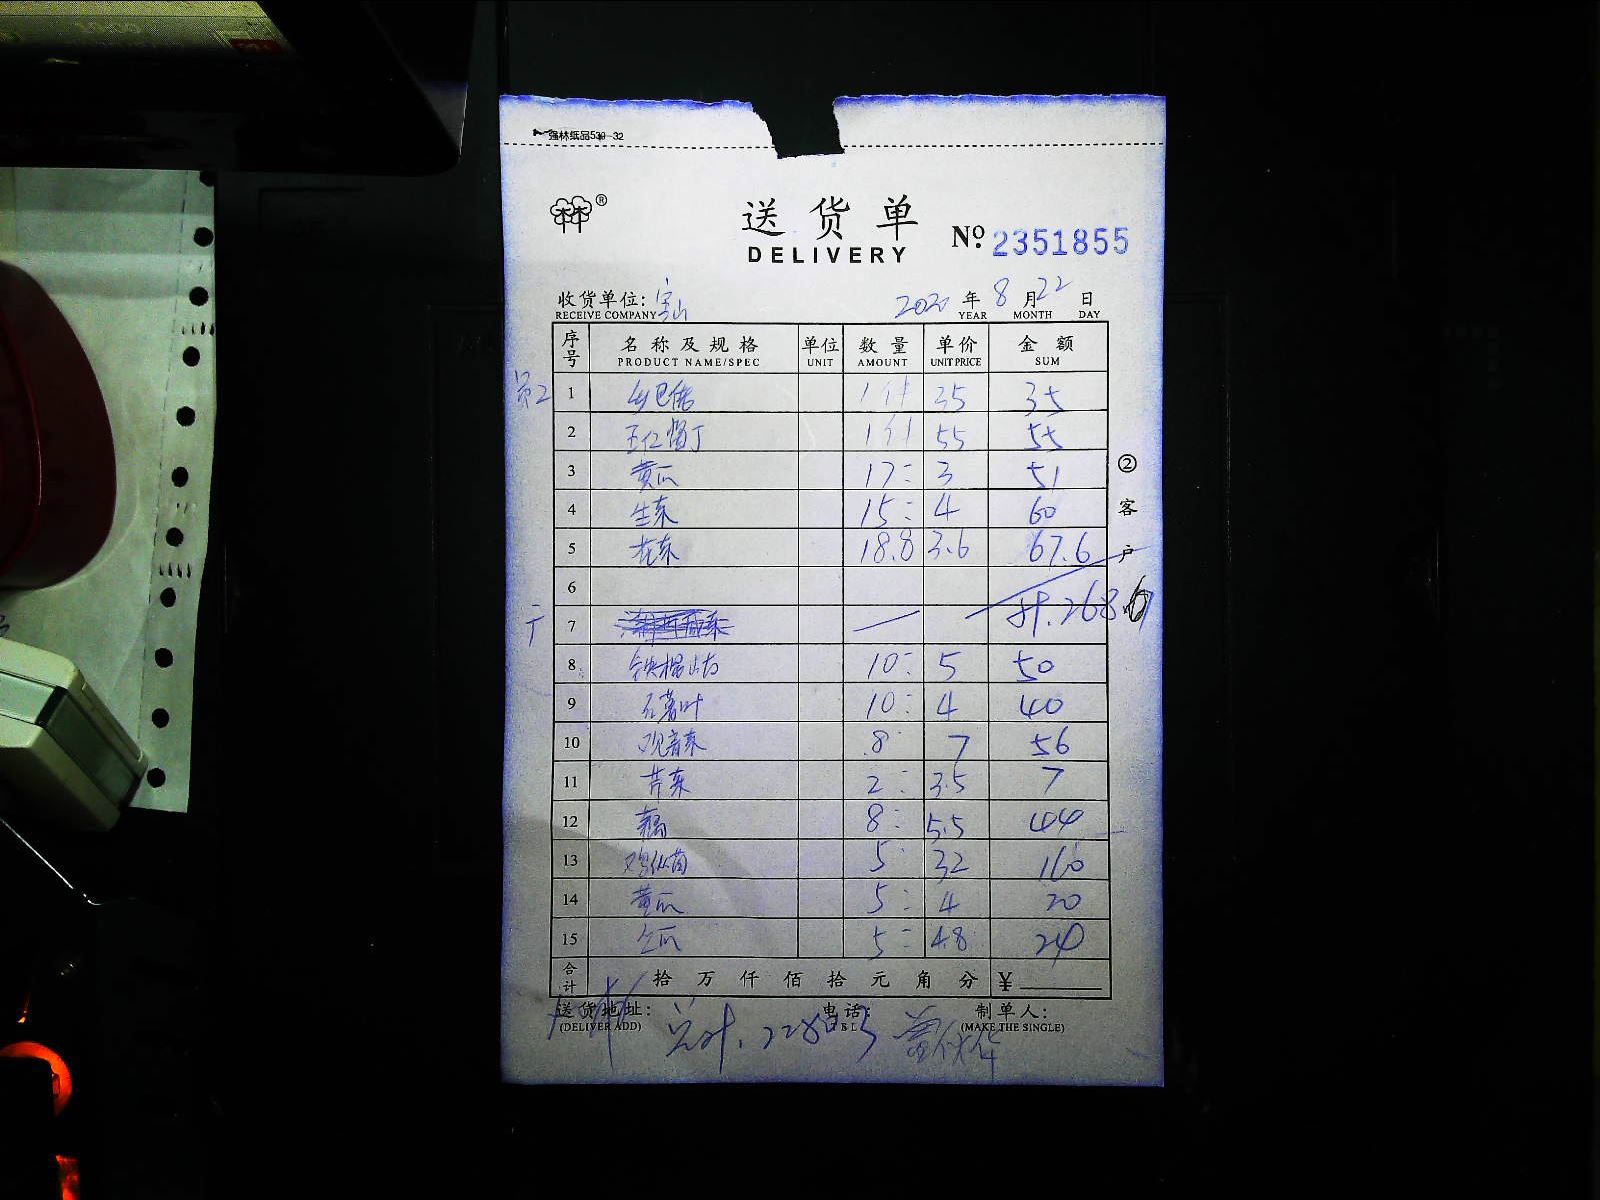 强林纸品539-32
®
送货单
DELIVERY
No. 2351855
收货单位: 宝山 2020 年 8 月 22 日
RECEIVE COMPANY YEAR MONTH DAY
序号 名称及规格 单位 数量 单价 金额
PRODUCT NAME/SPEC UNIT AMOUNT UNIT PRICE SUM
1 1件 35 35
2 1件 55 55
3 黄瓜 17 3 51
4 生菜 15 4 60
5 花菜 18.8 3.6 67.6
6
计.268.6
7
8 铁棍山 10 5 50
9 红薯叶 10 4 40
10 观音菜 8 7 56
11 芹菜 2 3.5 7
12 8 5.5 44
13 鸡枞菌 5 32 160
14 黄瓜 5 4 20
15 瓜 5 4.8 24
合计 拾 万 仟 佰 拾 元 角 分 ¥
送货地址: 电话: 制单人:
(DELIVER ADD) TEL (MAKE THE SINGLE)
总计.
② 客户